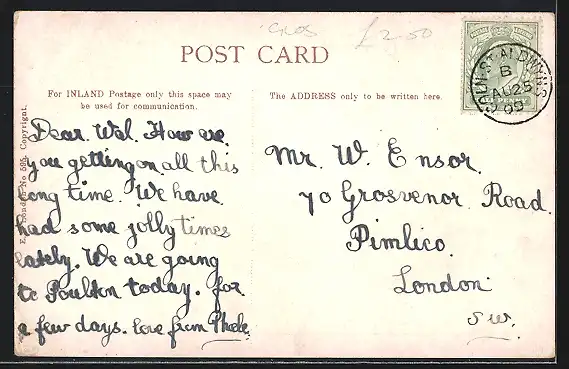 £2.00
POST CARD
For INLAND Postage only this space may
be used for communication.
The ADDRESS only to be written here.
COLN-ST ALDWYNS
B
AU 25
09
London No 595. Copyright.
Dear. Wal. How are.
you getting on all this
long time. We have.
had some jolly times
lately. We are going
to Poulton today. for
a few days. love from
Mr. W. Ensor.
70 Grosvenor Road.
Pimlico.
London.
S.W.